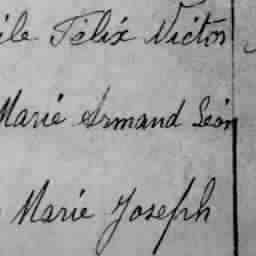 ile Félix Victor
Marie Armand Léon
Marie Joseph